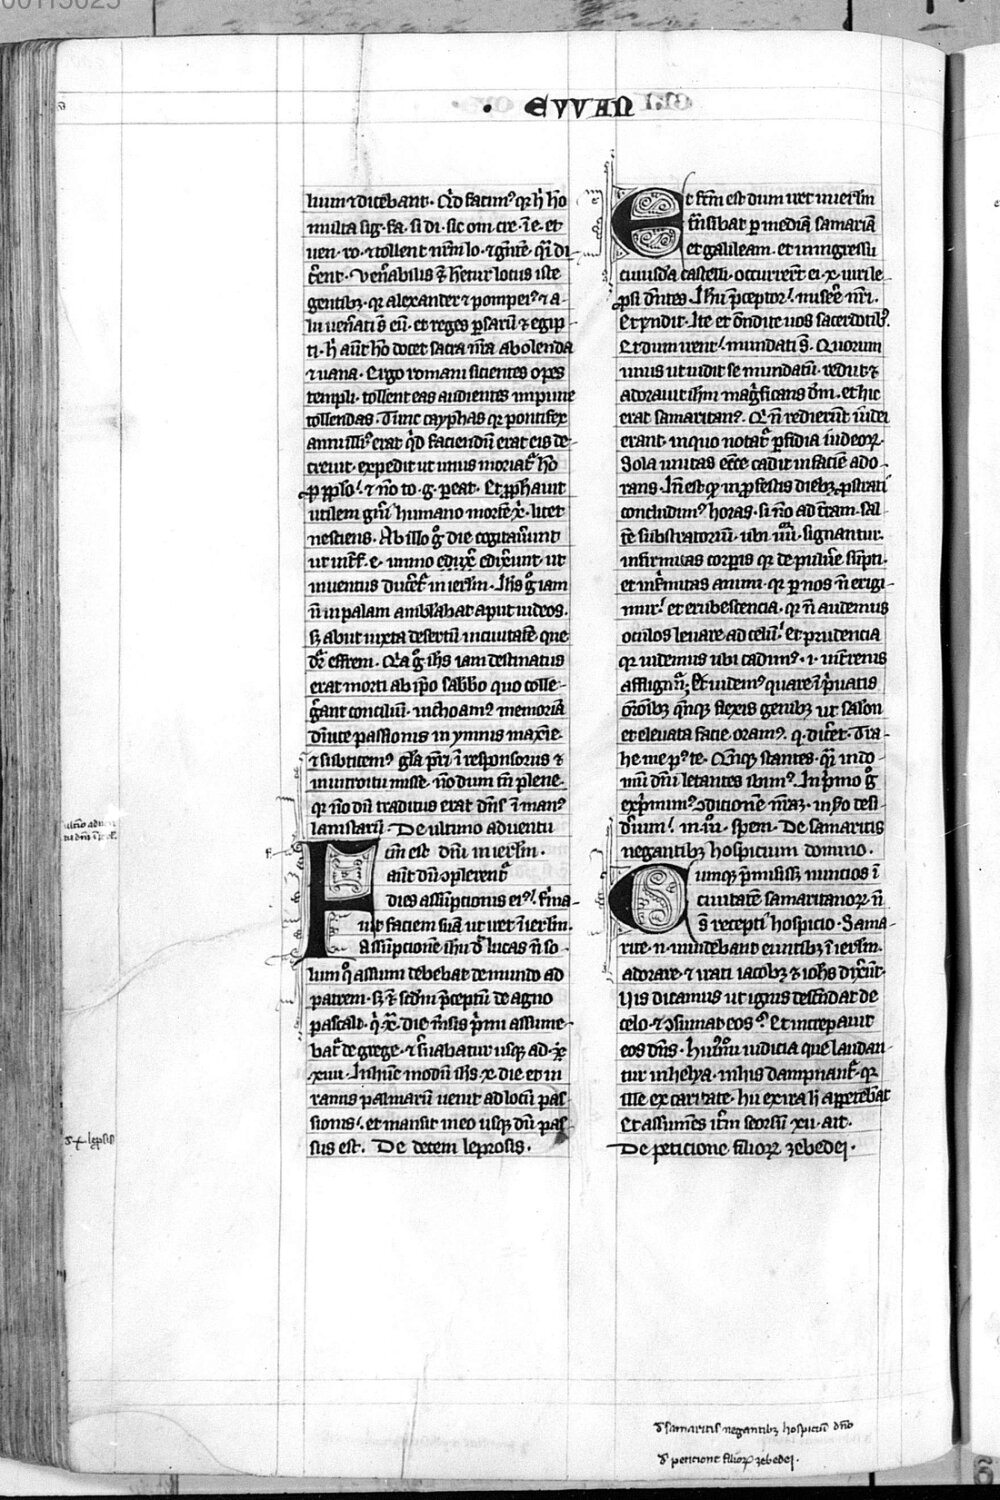 EVVAN
lium ⁊ dicebant. Qͥd facimꝰ qꝛ hͥ hō
multa sig. fa. si di. sic om̄ cre. ī e. et
uen. ro. ⁊ tollent nr̄m lo. ⁊ gn̄tē. qͥ di
cerent. Ven̄abilis ⁊ hetur locus iste
gentibꝫ. qꝛ alexander ⁊ pompeiꝰ ⁊ a-
lii uen̄ati s̄ eū. et reges ꝑsarū ⁊ egip-
ti. hͥ aūt hō docet sacra nr̄a abolenda
⁊ uana. Ergo romani sicientes opes
templi. tollent eas audientes impune
tollendas. Tunc cayphas qꝛ pontifex
anni illiꝰ erat qͥd faciendū erat eis de-
creuit. expedit ut unus moriat᷑ hō
ꝓ pp̄lo. ⁊ nō to. g. ꝑeat. Et ꝓphauit
utilem gn̄i humano mortē xͥ. licet
nesciens. Ab illo gͦ die cogitauerunt
ut int̄f. e. immo edixerunt. ut
inuentus duceret᷑ in ierl̄m. Ih̄s gͦ iam
n̄ in palam ambulabat aput iudeos.
sꝫ abiit iuxta desertū in ciuitatē que
dr̄ effrem. Qͥa gͦ ih̄s iam destinatus
erat morti ab ipo sabb̄o quo colle-
gerant conciliū. inchoamꝰ memoriā
dn̄ice passionis in ymnis maxime.
⁊ subticemꝰ gl̄a pr̄i ī responsoriis ⁊
in introitu misse. nōdum tn̄ plene.
qꝛ nōdū traditus erat dn̄s ī manꝰ
lanistarū. De ultimo aduentu
Actum est dn̄i in ierl̄m.
aūt dū ꝯplerent᷑
dies assūptionis eiꝰ. firma-
uit faciem suā ut iret ī ierl̄m.
Assūptionē ih̄u dͥ lucas n̄ so-
lum qͣ assumi debebat de mundo ad
patrem. sꝫ ⁊ scd̄m p̄ceptū de agno
pascali. qͥ .x. die m̄sis p̄mi assume-
bat᷑ de grege. ⁊ s̄uabatur usqꝫ ad
.xiiii. In hunc modū ih̄s .x. die et in
ramis palmarū uenit ad locū pas-
sionis. et mansit in eo usqꝫ dū pas-
sus est. De decem leprosis.
Et fc̄m est dum iret in ierl̄m
tn̄sibat ꝑ mediā samariā
et galileam. et in ingressu
cuiusdā castelli. occurrerūt ei .x. uiri le-
ꝓsi dicentes. Ih̄u p̄ceptor. miserē nr̄i.
Et rn̄dit. Ite et on̄dite uos sacerdotibꝰ.
Et dum irent. mundati s̄. Quorum
unus ut uidit se mundatū. rediit ⁊
adorauit ih̄m magn̄ficans dm̄. et hic
erat samaritanꝰ. Qͥ n̄ redierūt iudei
erant. in quo notat᷑ ꝑfidia iudeoꝝ.
Sola unitas ecc̄e cadit in faciē ado-
rans. Inde est qͥ in ꝓfestis diebꝫ ꝓstrati
concludimꝰ horas. si nō ad t̄ram. sal-
tē substratoriū. ubi iiii. signantur.
infirmitas corporis qꝛ de puluere sūpti.
et infirmitas animi. qꝛ ꝑ nos n̄ erigi-
mur. et erubescencia. qꝛ n̄ audemus
oculos leuare ad celū. et prudencia
qꝛ uidemus ubi cadimꝰ. .i.
Et uidemꝰ quare ī p̄uatis
or̄onibꝫ qn̄qꝫ flexis genibꝫ ut salon
et eleuata facie oramꝰ. q. dicerēt. Tra-
he me pꝰ te. Qn̄qꝫ stantes. qͥ in do-
mū dn̄i letantes ibimꝰ. In primo gͦ
exprimimꝰ
spem. De samaritis
negantibꝫ hospicium domino.
Cumqꝫ p̄misissꝫ nuncios ī
ciuitatē samaritanoꝝ n̄
s̄ recepti hospicio. Sama-
rite. n. inuidebant euntibꝫ ī ierl̄m.
adorare. ⁊ irati iacobꝫ ⁊ ioh̄s dixerūt.
Uis dicamus ut ignis descendat de
celo. ⁊ ꝯsumat eos. Et increpauit
eos dn̄s. iudicia que laudan-
tur in helya. in his dampnant᷑. qꝛ
ille ex caritate. hii ex ira hͥ appetebāt
Et assumēs itm̄ seorsū xii. ait.
De peticione filioꝝ zebedei.
ultīo aduen
tu dn̄i ī ierl̄.
d' x lep̄sis
d' samaritis negantibꝫ hospiciū dn̄o
d' peticione filioꝝ zebedei.